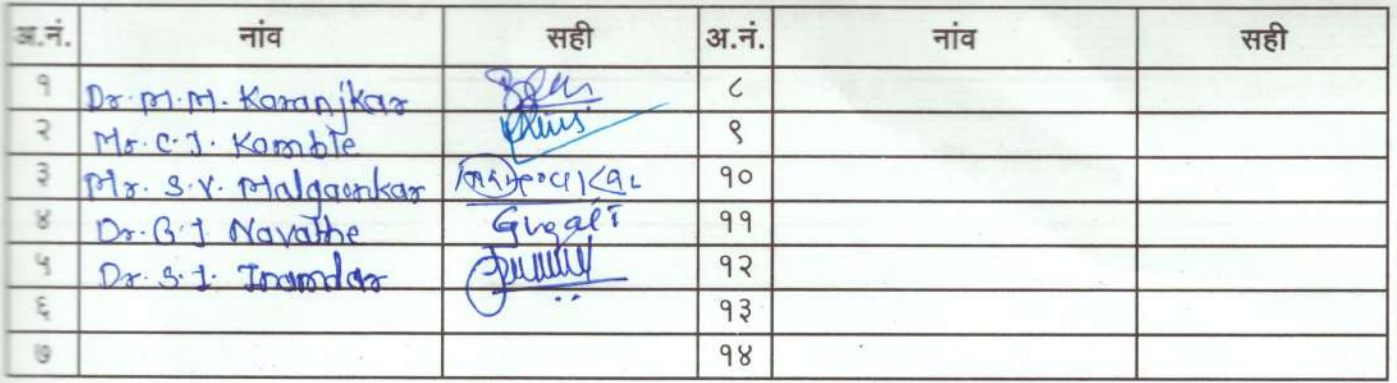 अ.नं. नांव सही अ.नं. नांव सही
१ Dr. M.M. Karanjkar ८
२ Mr. C.J. Kamble ९
३ Mr. S.V. Malgaonkar १०
४ Dr. G.J Navathe ११
५ Dr. S.I. Inamdar १२
६ १३
७ १४